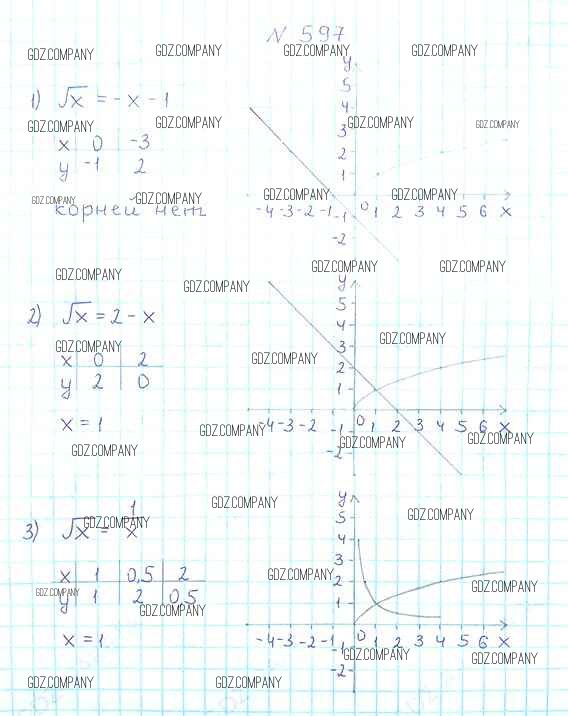 N 597
GDZ.COMPANY GDZ.COMPANY GDZ.COMPANY GDZ.COMPANY
y
5
1) √x = - x - 1
4
GDZ.COMPANY GDZ.COMPANY GDZ.COMPANY GDZ.COMPANY
3
x 0 -3
2
y -1 2
1
GDZ.COMPANY GDZ.COMPANY GDZ.COMPANY GDZ.COMPANY
корней нет
-4 -3 -2 -1 0 1 2 3 4 5 6 x
-1
-2
GDZ.COMPANY GDZ.COMPANY GDZ.COMPANY GDZ.COMPANY
y
5
2) √x = 2 - x
4
GDZ.COMPANY GDZ.COMPANY
3
x 0 2
2
y 2 0
1
x = 1
-4 -3 -2 -1 0 1 2 3 4 5 6 x
GDZ.COMPANY GDZ.COMPANY GDZ.COMPANY GDZ.COMPANY
-2
GDZ.COMPANY GDZ.COMPANY
y
5
3) √x = 1/x
GDZ.COMPANY
4
3
x 1 0,5 2
GDZ.COMPANY GDZ.COMPANY GDZ.COMPANY
2
y 1 2 0,5
1
GDZ.COMPANY
x = 1
-4 -3 -2 -1 0 1 2 3 4 5 6 x
-1
GDZ.COMPANY GDZ.COMPANY
-2
GDZ.COMPANY GDZ.COMPANY GDZ.COMPANY